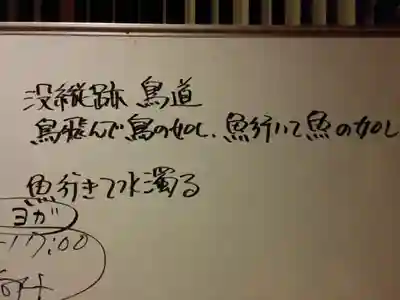 没縦跡 鳥道
鳥飛んで鳥の如し、魚行いて魚の如し
魚行きて水濁る
ヨガ
-17:00